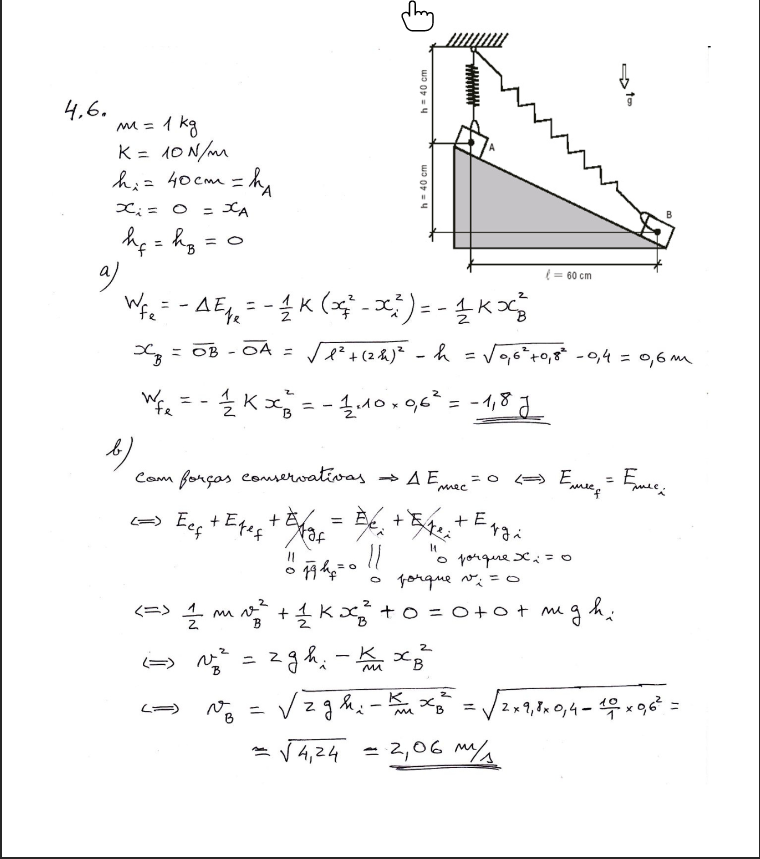 4.6.
m = 1 kg
K = 10 N/m
h_i = 40 cm = h_A
x_i = 0 = x_A
h_f = h_B = 0
h = 40 cm
h = 40 cm
A
B
g⃗
ℓ = 60 cm
a)
W_fe = - ΔE_pe = - 1/2 K (x_f² - x_i²) = - 1/2 K x_B²
x_B = OB - OA = √(ℓ² + (2h)²) - h = √(0,6² + 0,8²) - 0,4 = 0,6 m
W_fe = - 1/2 K x_B² = - 1/2 . 10 × 0,6² = - 1,8 J
b)
Com forças conservativas ⇒ ΔE_mec = 0 ⇔ E_mec_f = E_mec_i
⇔ E_cf + E_pef + E_pgf = E_ci + E_pei + E_pgi
0 pq h_f = 0
0 porque x_i = 0
0 porque v_i = 0
⇔ 1/2 m v_B² + 1/2 K x_B² + 0 = 0 + 0 + m g h_i
⇔ v_B² = 2 g h_i - K/m x_B²
⇔ v_B = √(2 g h_i - K/m x_B²) = √(2 × 9,8 × 0,4 - 10/1 × 0,6²) =
= √4,24 = 2,06 m/s